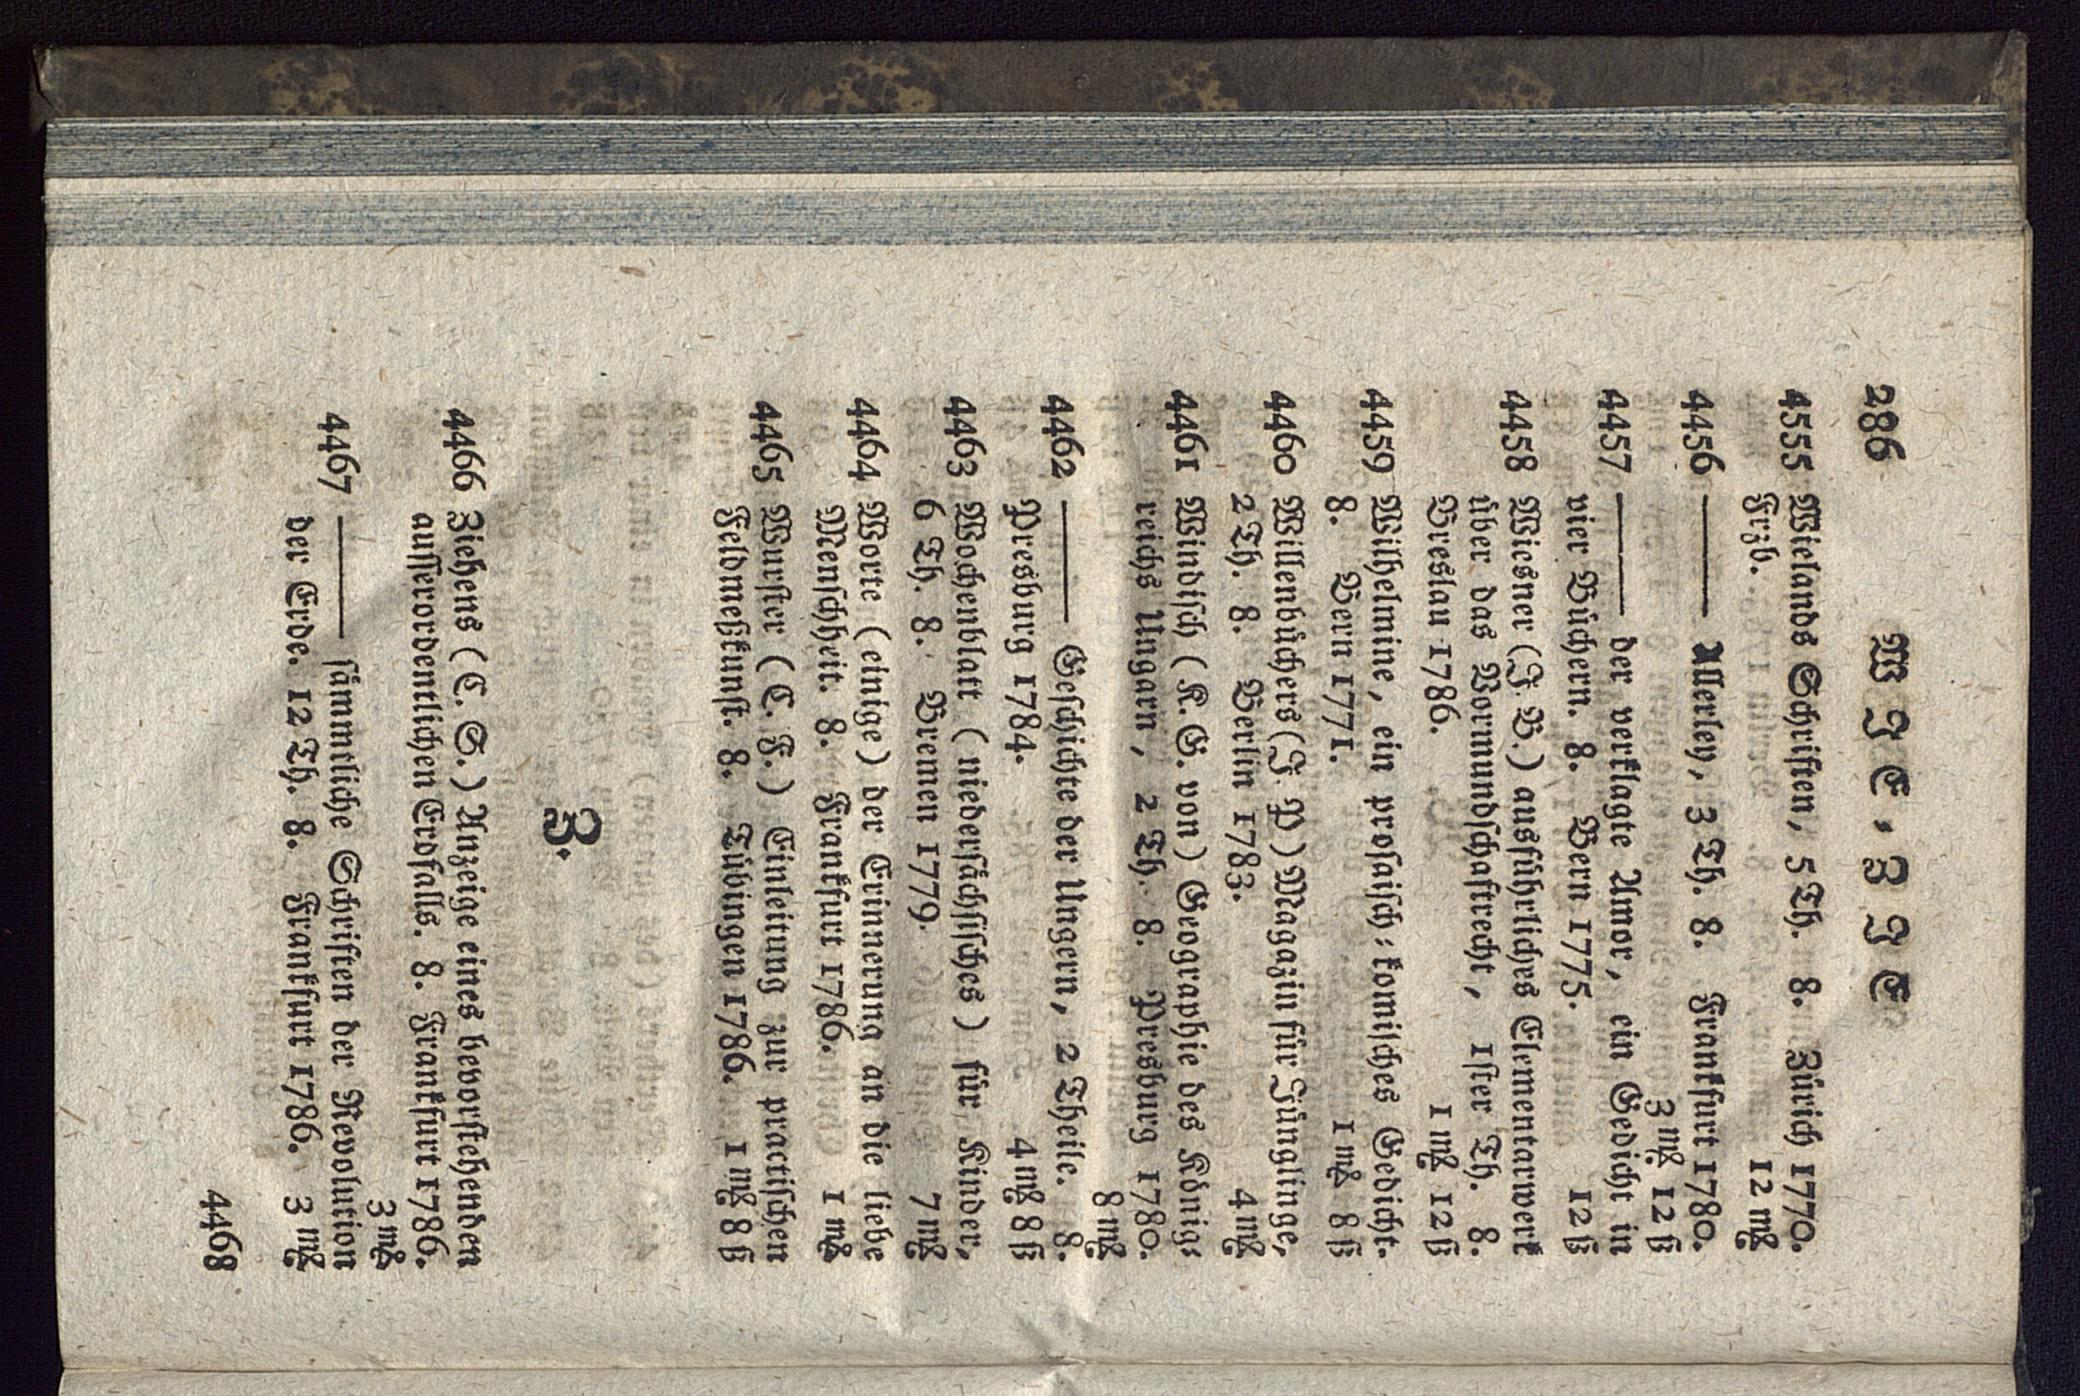 286 W I E, Z I E
4555 Wielands Schriften, 5 Th. 8. Zürich 1770.
Frzb. 12 mß
4456 ——— Allerley, 3 Th. 8. Frankfurt 1780.
3 mß 12 ß
4457 ——— der verklagte Amor, ein Gedicht in
vier Büchern. 8. Bern 1775. 12 ß
4458 Wiesner (J. B.) ausführliches Elementarwerk
über das Vormundschaftrecht, 1ster Th. 8.
Breslau 1786. 1 mß 12 ß
4459 Wilhelmine, ein prosaisch-komisches Gedicht.
8. Bern 1771. 1 mß 8 ß
4460 Willenbüchers (J. P) Magazin für Jünglinge,
2 Th. 8. Berlin 1783. 4 mß
4461 Windisch (K. G. von) Geographie des König-
reichs Ungarn, 2 Th. 8. Presburg 1780.
8 mß
4462 ——— Geschichte der Ungern, 2 Theile. 8.
Presburg 1784. 4 mß 8 ß
4463 Wochenblatt (niedersächsisches) für Kinder,
6 Th. 8. Bremen 1779. 7 mß
4464 Worte (einige) der Erinnerung an die liebe
Menschheit. 8. Frankfurt 1786. 1 mß
4465 Wurster (C. F.) Einleitung zur practischen
Feldmeßkunst. 8. Tübingen 1786. 1 mß 8 ß
Z.
4466 Ziehens (C. S.) Anzeige eines bevorstehenden
ausserordentlichen Erdfalls. 8. Frankfurt 1786.
3 mß
4467 ——— sämmtliche Schriften der Revolution
der Erde. 12 Th. 8. Frankfurt 1786. 3 mß
4468